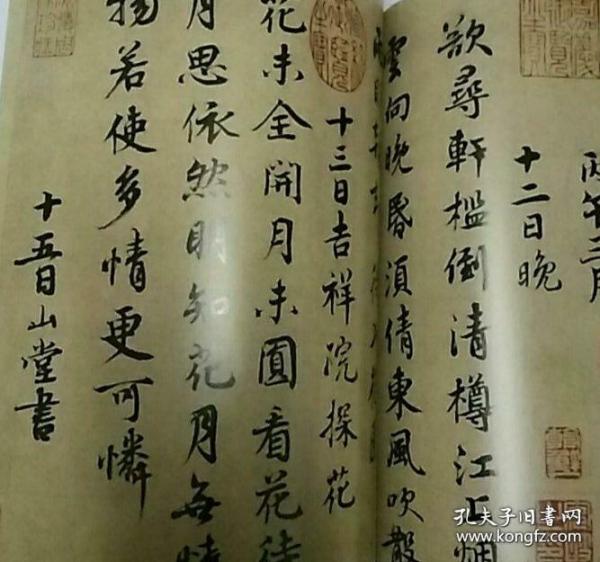 丙午三月
十二日晚
欲尋軒檻倒清樽江上烟
雲向晚昏須倩東風吹散
十三日吉祥院探花
花未全開月未圓看花待
月思依然明知花月無情
物若使多情更可憐
十五日山堂書
孔夫子旧书网
www.kongfz.com